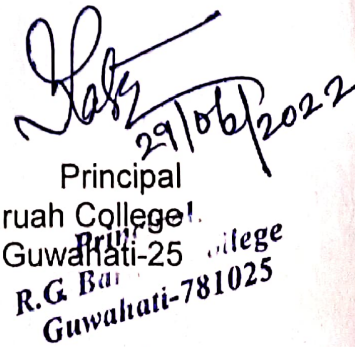 29/06/2022
Principal
ruah College
Guwahati-25
R.G. Bar
Guwahati-781025